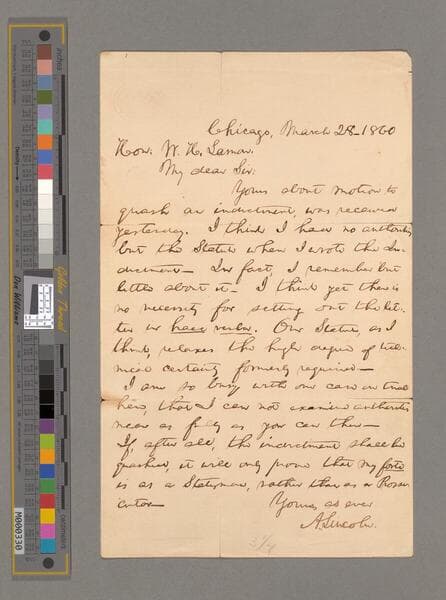 Chicago, March 28_ 1860
Hon: W. H. Lamon.
My dear Sir:
Yours about motion to
quash an indictment, was received
yesterday. I think I had no authority
but the Statute when I wrote the In-
dictment— In fact, I remember but
little about it— I think yet there is
no necessity for setting out the let-
ter in haec verba. Our Statute, as I
think, relaxes the high degree of tech-
nical certainty formerly required—
I am so busy with our case on trial
here, that I can not examine authorities
near as fully as you can there—
If, after all, the indictment shall be
quashed, it will only prove that my forte
is as a Statesman, rather than as a Prose-
cutor—
Yours as ever
A. Lincoln.
inches
centimeters
Golden Thread
Don Williams
M000330